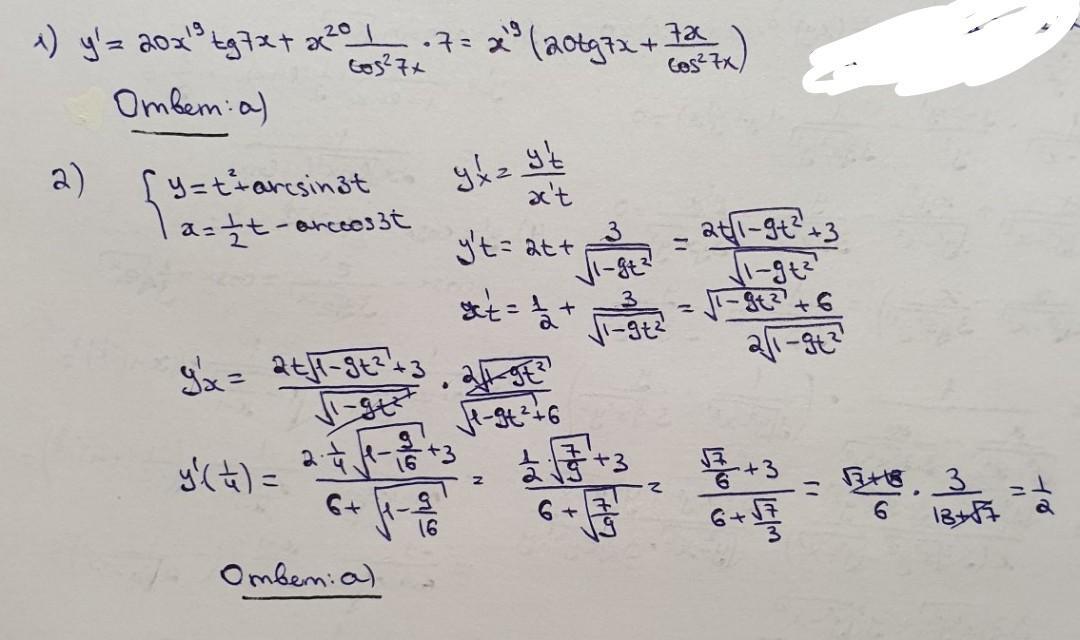 1) y' = 20x¹⁹ tg7x + x²⁰ 1/cos²7x · 7 = x¹⁹ (20tg7x + 7x/cos²7x)
Ответ: а)
2) { y = t² + arcsin3t
x = 1/2 t - arccos3t
y'x = y't/x't
y't = 2t + 3/√(1-9t²) = (2t√(1-9t²) + 3)/√(1-9t²)
x't = 1/2 + 3/√(1-9t²) = (√(1-9t²) + 6)/(2√(1-9t²))
y'x = (2t√(1-9t²) + 3)/√(1-9t²) · 2√(1-9t²)/(√(1-9t²) + 6)
y'(1/4) = (2·1/4 √(1-9/16) + 3)/(6 + √(1-9/16)) = (1/2 · √(7/9) + 3)/(6 + √(7/9)) = (√7/6 + 3)/(6 + √7/3) = (√7+18)/6 · 3/(18+√7) = 1/2
Ответ: а)